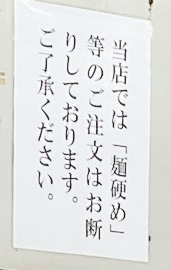 当店では「麺硬め」
等のご注文はお断
りしております。
ご了承ください。